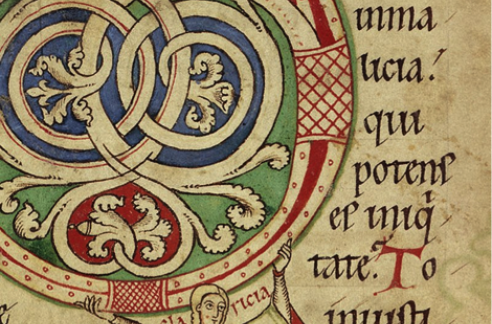 inma
licia.
qui
potenſ
eſ iniq̃
tate. To
iniusti
la ricia